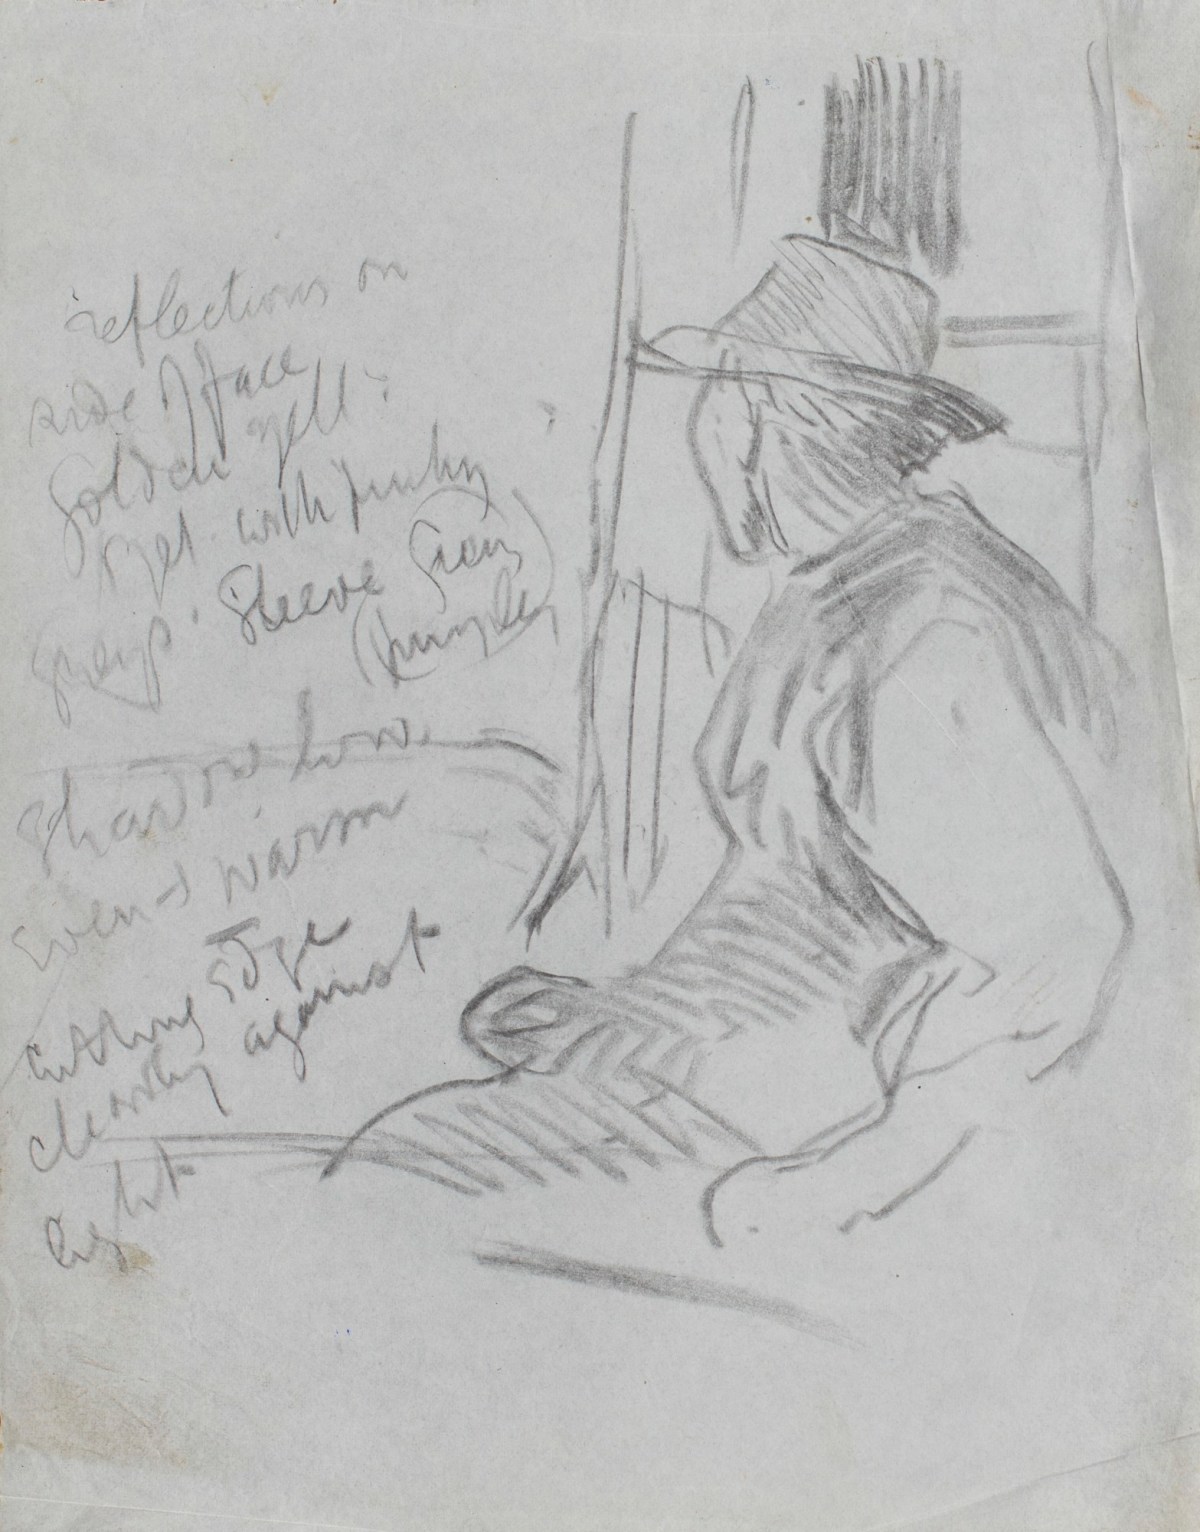 reflections on
side of face
golden yell:
yet with
greys. Sleeve Grey
(purpley)
Shadow low.
even & warm
cutting edge
clearly against
light